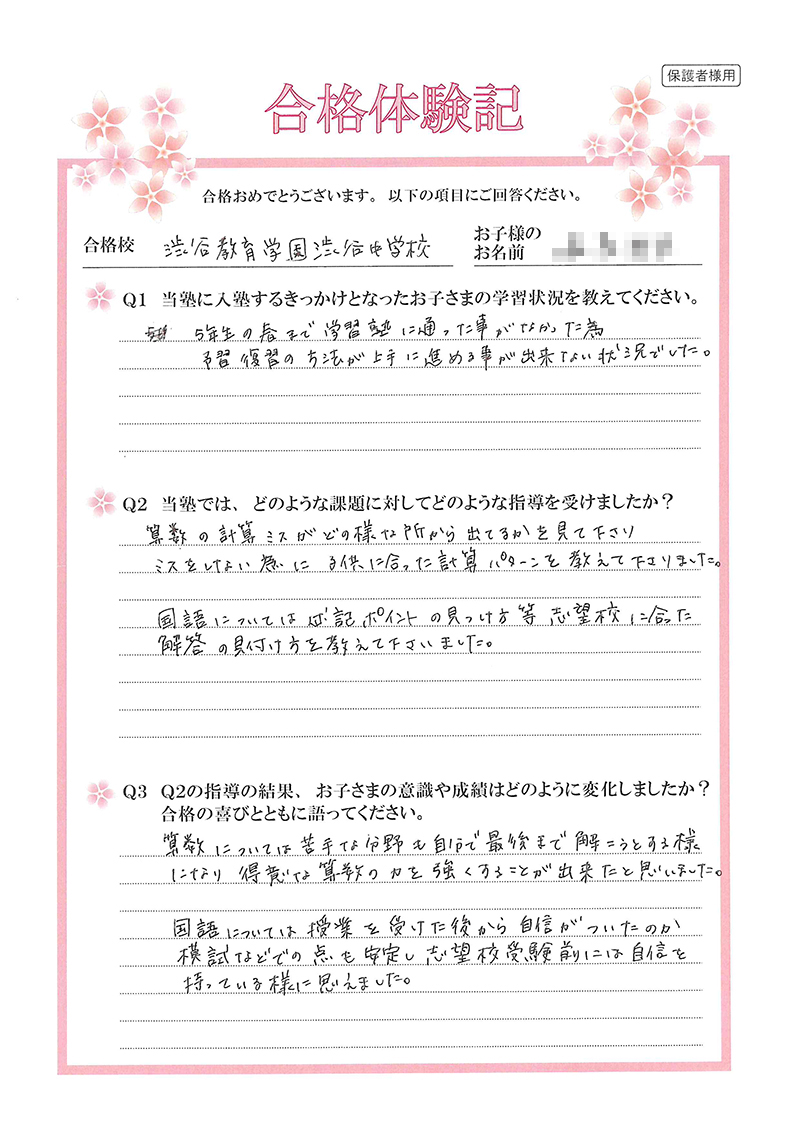 保護者様用
合格体験記
合格おめでとうございます。以下の項目にご回答ください。
合格校 渋谷教育学園渋谷中学校
お子様の
お名前
Q1 当塾に入塾するきっかけとなったお子さまの学習状況を教えてください。
5年生の春まで学習塾に通った事がなかった為
予習復習の方法が上手に進める事が出来ない状況でした。
Q2 当塾では、どのような課題に対してどのような指導を受けましたか？
算数の計算ミスがどの様な所から出てるかを見て下さり
ミスをしない為に子供に合った計算パターンを教えて下さりました。
国語については 記ポイントの見つけ方等志望校に合った
解答の見付け方を教えて下さいました。
Q3 Q2の指導の結果、お子さまの意識や成績はどのように変化しましたか？
合格の喜びとともに語ってください。
算数については苦手な分野も自分で最後まで解こうとする様
になり得意な算数の力を強くすることが出来たと思いました。
国語については授業を受けた後から自信がついたのか
模試などでの点も安定し志望校受験前には自信を
持っている様に思えました。